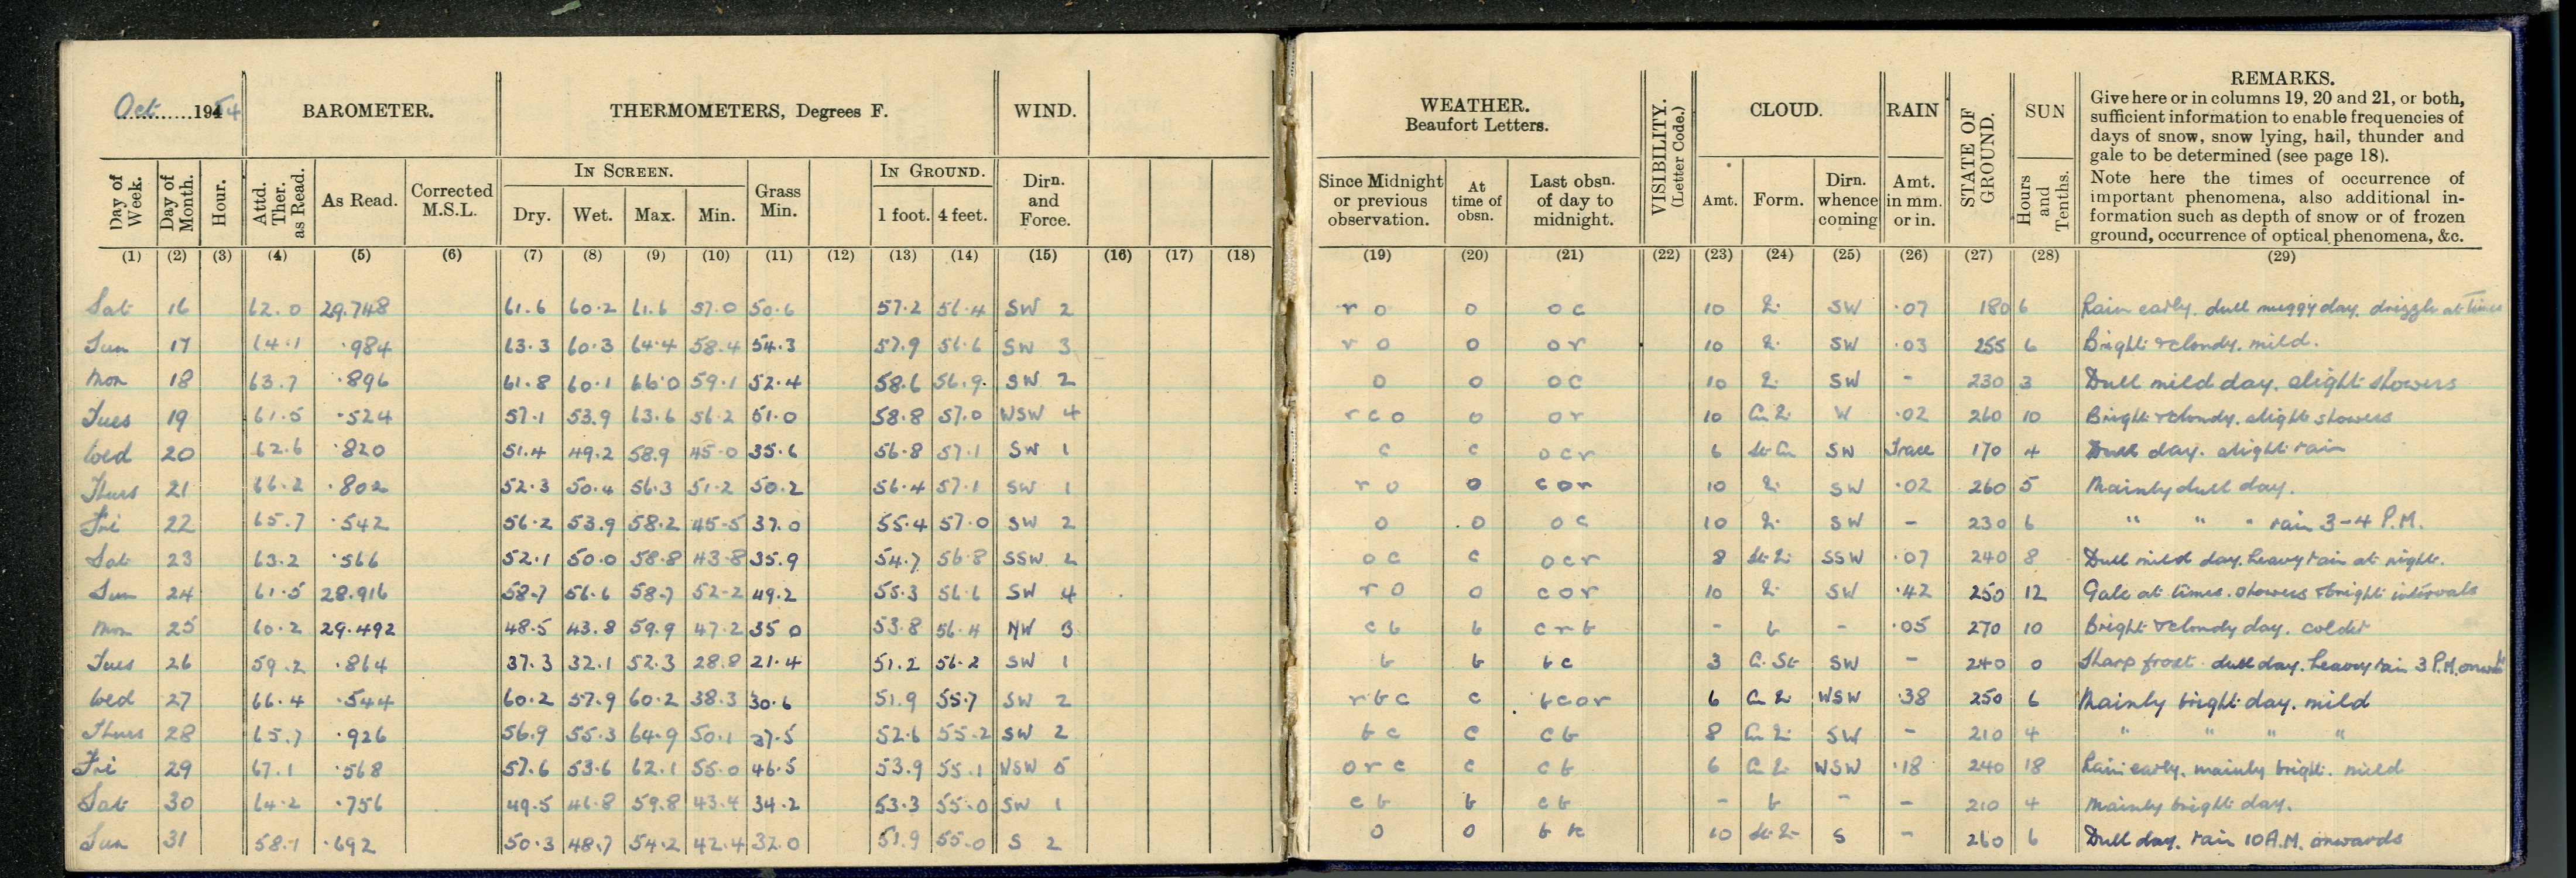 Oct 1954 BAROMETER. THERMOMETERS, Degrees F. WIND. WEATHER. Beaufort Letters. VISIBILITY. (Letter Code.) CLOUD. RAIN STATE OF GROUND. SUN REMARKS.
Give here or in columns 19, 20 and 21, or both,
sufficient information to enable frequencies of
days of snow, snow lying, hail, thunder and
gale to be determined (see page 18).
Note here the times of occurrence of
important phenomena, also additional in-
formation such as depth of snow or of frozen
ground, occurrence of optical phenomena, &c.
IN SCREEN. IN GROUND.
Day of Week. Day of Month. Hour. Attd. Ther. as Read. As Read. Corrected M.S.L. Dry. Wet. Max. Min. Grass Min. 1 foot. 4 feet. Dirn. and Force. Since Midnight or previous observation. At time of obsn. Last obsn. of day to midnight. Amt. Form. Dirn. whence coming Amt. in mm. or in. Hours and Tenths.
(1) (2) (3) (4) (5) (6) (7) (8) (9) (10) (11) (12) (13) (14) (15) (16) (17) (18) (19) (20) (21) (22) (23) (24) (25) (26) (27) (28) (29)
Sat 16 62.0 29.748 61.6 60.2 61.6 57.0 50.6 57.2 56.4 SW 2 r o o o c 10 SW .07 180 6 Rain early. dull muggy day. drizzle at times
Sun 17 64.1 .984 63.3 60.3 64.4 58.4 54.3 57.9 56.6 SW 3 r o o o r 10 SW .03 255 6 Bright & cloudy. mild.
Mon 18 63.7 .896 61.8 60.1 66.0 59.1 52.4 58.6 56.9 SW 2 o o o c 10 SW - 230 3 Dull mild day. slight showers
Tues 19 61.5 .524 57.1 53.9 63.6 56.2 51.0 58.8 57.0 WSW 4 r c o o o r 10 W .02 260 10 Bright & cloudy. slight showers
Wed 20 62.6 .820 51.4 49.2 58.9 45.0 35.6 56.8 57.1 SW 1 c c o c r 6 St Cu SW Trace 170 4 Dull day. slight rain
Thurs 21 66.2 .802 52.3 50.4 56.3 51.2 50.2 56.4 57.1 SW 1 r o o c o r 10 SW .02 260 5 Mainly dull day.
Fri 22 65.7 .542 56.2 53.9 58.2 45.5 37.0 55.4 57.0 SW 2 o o o c 10 SW - 230 6 " " " rain 3-4 P.M.
Sat 23 63.2 .566 52.1 50.0 58.8 43.8 35.9 54.7 56.8 SSW 2 o c c o c r 8 SSW .07 240 8 Dull mild day. heavy rain at night.
Sun 24 61.5 28.916 58.7 56.6 58.7 52.2 49.2 55.3 56.6 SW 4 r o o c o r 10 SW .42 250 12 Gale at times. showers & bright intervals
Mon 25 60.2 29.492 48.5 43.8 59.9 47.2 35.0 53.8 56.4 NW 3 c b b c r b - b - .05 270 10 Bright & cloudy day. colder
Tues 26 59.2 .864 37.3 32.1 52.3 28.8 21.4 51.2 56.2 SW 1 b b b c 3 C. St SW - 240 0 Sharp frost. dull day. heavy rain 3 P.M. onwds
Wed 27 66.4 .544 60.2 57.9 60.2 38.3 30.6 51.9 55.7 SW 2 r b c c b c o r 6 WSW .38 250 6 Mainly bright day. mild
Thurs 28 65.7 .926 56.9 55.3 64.9 50.1 37.5 52.6 55.2 SW 2 b c c c b 8 SW - 210 4 " " " "
Fri 29 67.1 .568 57.6 53.6 62.1 55.0 46.5 53.9 55.1 WSW 5 o r c c c b 6 WSW .18 240 18 Rain early. mainly bright. mild
Sat 30 64.2 .756 49.5 46.8 59.8 43.4 34.2 53.3 55.0 SW 1 c b b c b - b - - 210 4 Mainly bright day.
Sun 31 58.1 .692 50.3 48.7 54.2 42.4 32.0 51.9 55.0 S 2 o o 10 S - 260 6 Dull day. rain 10 A.M. onwards